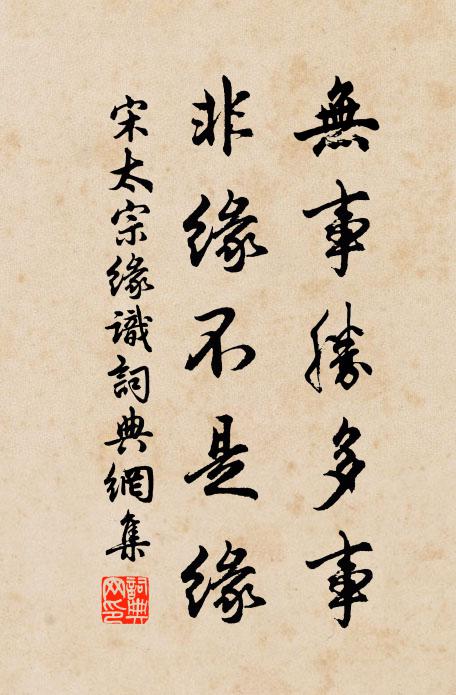 無事勝多事
非緣不是緣
宋太宗緣識詞典網集
詞典网印